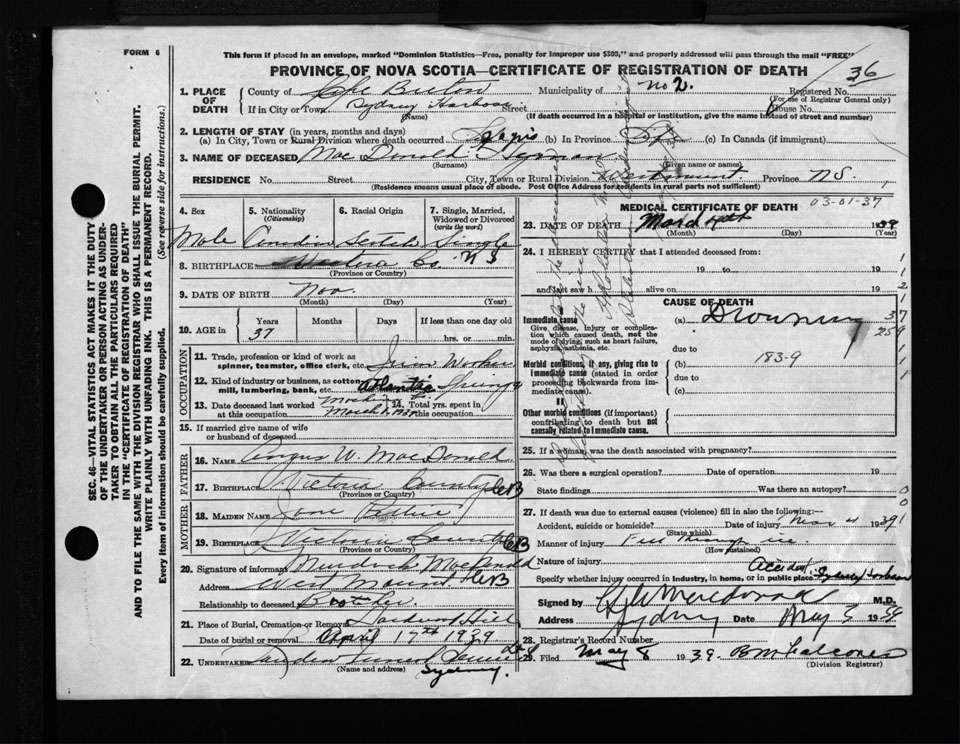 FORM 6
This form if placed in an envelope, marked "Dominion Statistics—Free, penalty for improper use $300," and properly addressed will pass through the mail "FREE"
PROVINCE OF NOVA SCOTIA—CERTIFICATE OF REGISTRATION OF DEATH
36
1. PLACE OF DEATH
County of Cape Breton Municipality of No 2. Registered No.
(For use of Registrar General only)
If in City or Town Sydney Harbour Street House No.
(Name) (If death occurred in a hospital or institution, give the name instead of street and number)
2. LENGTH OF STAY (in years, months and days)
(a) In City, Town or Rural Division where death occurred (b) In Province (c) In Canada (if immigrant)
3. NAME OF DECEASED MacDonald Hyman
(Surname) (Given name or names)
RESIDENCE No. Street City, Town or Rural Division Westmount Province N.S.
(Residence means usual place of abode. Post Office Address for residents in rural parts not sufficient)
4. Sex 5. Nationality (Citizenship) 6. Racial Origin 7. Single, Married, Widowed or Divorced (write the word)
Male Canadian Scotch Single
8. BIRTHPLACE Victoria Co. N S
(Province or Country)
9. DATE OF BIRTH Nov.
(Month) (Day) (Year)
10. AGE in Years Months Days If less than one day
37 hrs. or min.
OCCUPATION
11. Trade, profession or kind of work as spinner, teamster, office clerk, etc.
12. Kind of industry or business, as cotton mill, lumbering, bank, etc. Atlantic
13. Date deceased last worked at this occupation March 1939 14. Total yrs. spent in this occupation
15. If married give name of wife or husband of deceased
FATHER
16. NAME Angus W. MacDonald
17. BIRTHPLACE Victoria County CB
(Province or Country)
MOTHER
18. MAIDEN NAME Jane
19. BIRTHPLACE Victoria County CB
(Province or Country)
20. Signature of informant Murdock MacDonald
Address West Mount CB
Relationship to deceased Brother
21. Place of Burial, Cremation or Removal Hill
Date of burial or removal April 17th 1939
22. UNDERTAKER Sydney.
MEDICAL CERTIFICATE OF DEATH
03-01-37
23. DATE OF DEATH March 4th 1939
(Month) (Day) (Year)
24. I HEREBY CERTIFY that I attended deceased from:
19 to 19
and last saw h alive on 19
CAUSE OF DEATH
Immediate cause (a) Drowning
Give disease, injury or complication which caused death, not the mode of dying, such as heart failure, asphyxia, asthenia, etc.
due to
Morbid conditions, if any, giving rise to immediate cause (stated in order proceeding backwards from immediate cause).
(b) 183-9
due to
(c)
Other morbid conditions (if important) contributing to death but not causally related to immediate cause.
25. If a woman, was the death associated with pregnancy?
26. Was there a surgical operation? Date of operation 19
State findings Was there an autopsy?
27. If death was due to external causes (violence) fill in also the following:—
Accident, suicide or homicide? Date of injury Mar 4 1939
(State which)
Manner of injury Fell through ice
(How sustained)
Nature of injury Accident.
Specify whether injury occurred in industry, in home, or in public place Sydney Harbour
Signed by MacDonald M.D.
Address Sydney Date May 5 1939
28. Registrar's Record Number
29. Filed May 8 1939. B M Falconer
(Division Registrar)
SEC. 46—VITAL STATISTICS ACT MAKES IT THE DUTY OF THE UNDERTAKER OR PERSON ACTING AS UNDERTAKER TO OBTAIN ALL THE PARTICULARS REQUIRED IN THE "CERTIFICATE OF REGISTRATION OF DEATH" AND TO FILE THE SAME WITH THE DIVISION REGISTRAR WHO SHALL ISSUE THE BURIAL PERMIT.
WRITE PLAINLY WITH UNFADING INK. THIS IS A PERMANENT RECORD.
Every item of information should be carefully supplied. (See reverse side for instructions.)